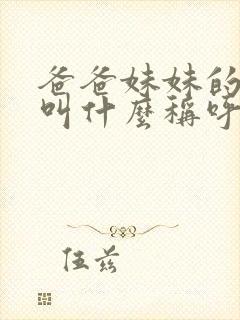 爸爸妹妹的
叫什麽稱呼
伍兹